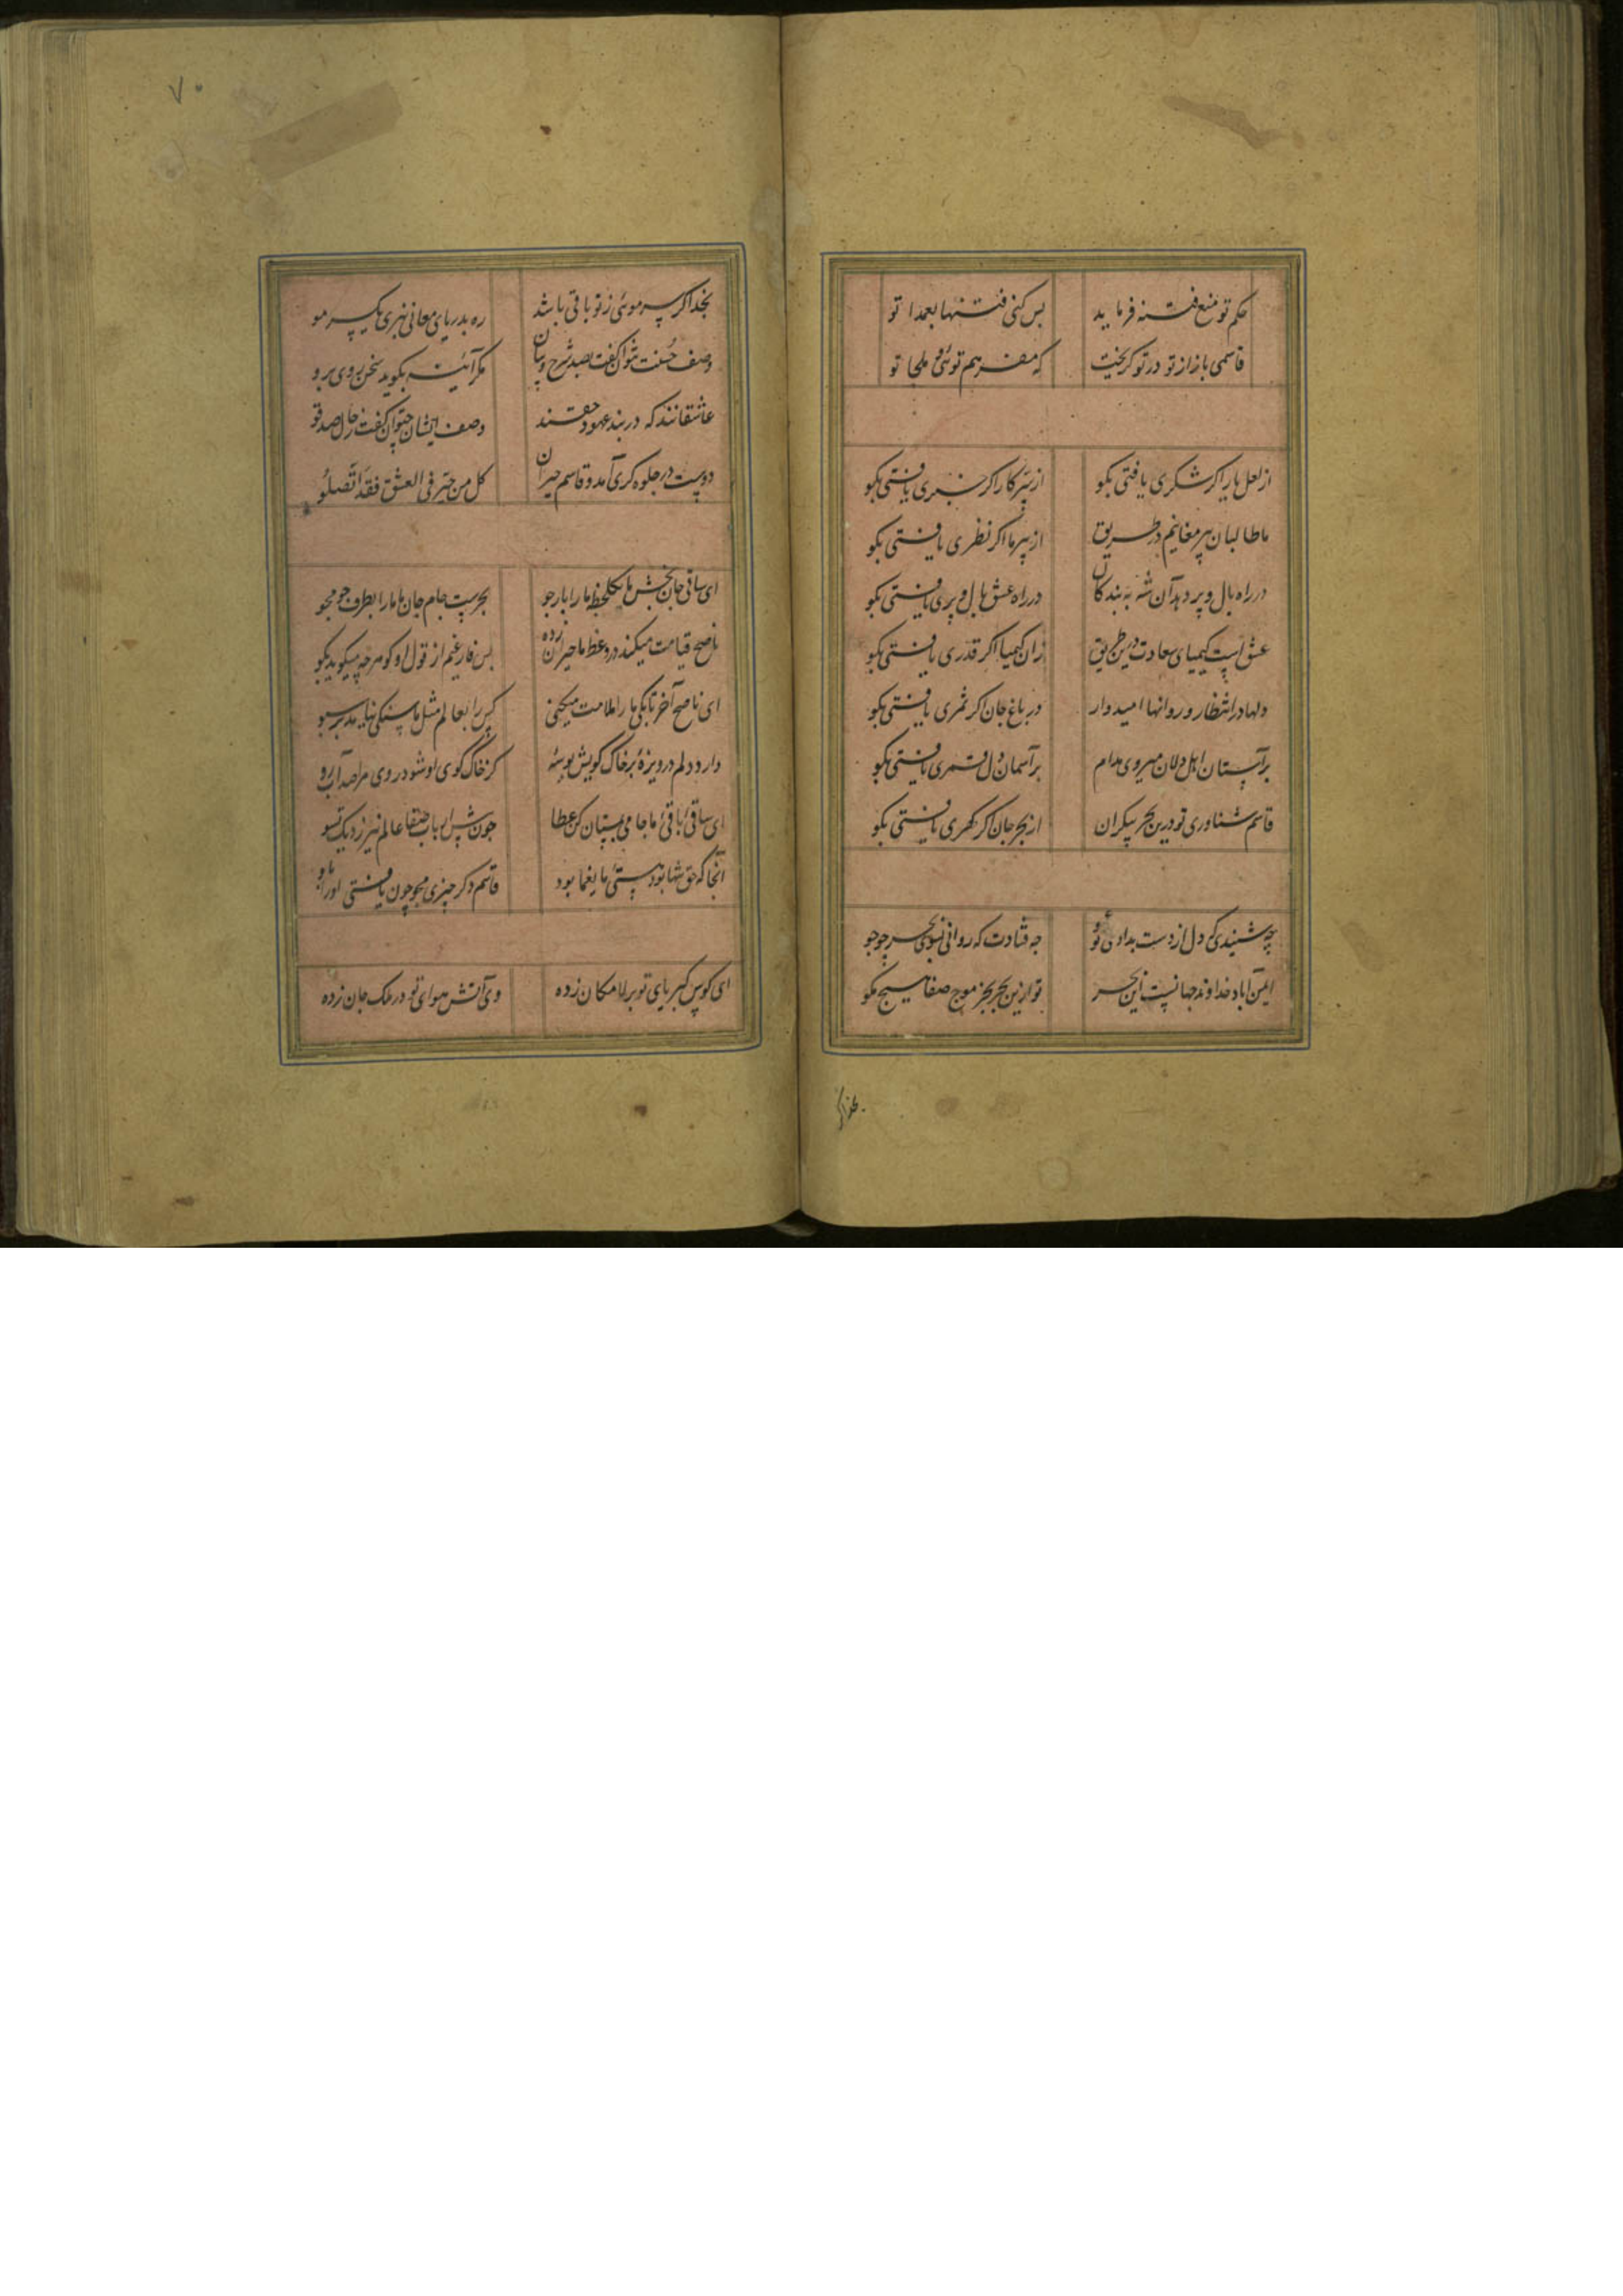 حکم تو منع فتنه فرماید بس کنی فتنها بعمدا تو
قاسمی باز از تو در تو کریخت که مفر هم توئی و ملجا تو
از لعل یار اکر شکری یافتی بکو از سر کار اکر خبری یافتی بکو
ما طالبان پیر مغانیم در طریق از پیر ما اکر نظری یافتی بکو
در راه بال و پر دهد آن شه به بندکان در راه عشق بال و پری یافتی بکو
عشق است کیمیای سعادت درین طریق زان کیمیا اکر قدری یافتی بکو
دلها در انتظار و روانها امیدوار در باغ جان کر ثمری یافتی بکو
بر آستان اهل دلان میروی مدام بر آسمان دل قمری یافتی بکو
قاسم شناوری تو درین بحر بیکران از بحر جان کر کهری یافتی بکو
چه شنیدی که دل از دست بدادی تو چه فتادت که روانی بسوی بحر چو جو
ایمن آباد خداوند جهانست این بحر تو ازین بحر بجز موج صفا هیچ مکو
بخدا کر
۷۰
بخدا کر سر موئی ز تو باقی باشد ره بدریای معانی نبری یکسر مو
وصف حسنت نتوان کفت بصد شرح و بیان مکر آئینه بکوید سخن روی برو
عاشقانند که در بند عهود حقند وصف ایشان چتوان کفت رجال صدقو
دوست در جلوه کری آمد و قاسم حیران کل من حیر فی العشق فقد اتصلو
ای ساقی جان بخش ما یکلحظه ما را باز جو بحرست جام جان ما ما را بطرف جو مجو
ناصح قیامت میکند در وعظ ما حیران زده بس فارغم از قول او کو هرچه میکوید بکو
ای ناصح آخر تا بکی ما را ملامت میکنی کس را بعالم مثل ما سنکی نیامد بر سبو
دارد دلم دریوزهٔ بر خاک کویش بوسهٔ کز خاک کوی او شود روی مرا صد آب رو
ای ساقی باقی ما جامی بمستان کن عطا چون پیش ارباب بقا عالم نیرزد یک تسو
آنجا که حق تنها بود هستی ما یغما بود قاسم دکر چیزی مجو چون یافتی او را باو
ای کوس کبریای تو بر لامکان زده وی آتش هوای تو در ملک جان زده